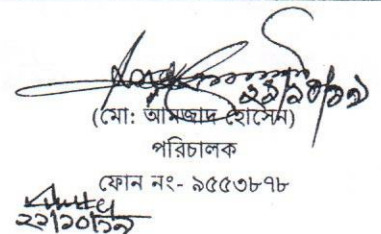 ২২/১০/১৭
(মো: আমজাদ হোসেন)
পরিচালক
ফোন নং- ৯৫৫৩৮৭৮
২২/১০/১৭